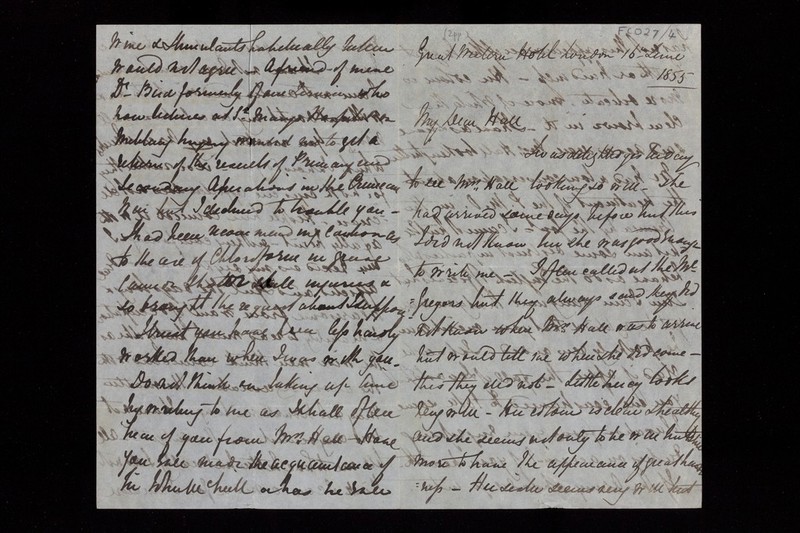 FCO27/4
Great Western Hotel London 16th June
1855
My Dear Hall
I was delighted yesterday
to see Mrs Hall looking so well - She
had arrived some days before but this
I did not know till she was good enough
to write me I often called at the Mc
Gregors but they always said they did
not know when Mrs Hall was to arrive
but would tell me when she did come -
this they did not - Little Lucy looks
very well - Her colour is clear & healthy
and she seems not only to be well but
more to have the appearance of great
ness - Her sister seems very well but
Wine & Stimulants habitually taken
would not agree - A friend of mine
Dr Bird formerly of our Service who
now lectures at St Mary's Hospital on
Military Surgery wanted me to get a
return of the results of Primary and
Secondary Operations in the Crimean
War but I declined to trouble you -
I had been recommend my Caution as
to the use of Chloroform in grave
Cannon Shot or Shell injuries &
so brought the request about I suppose
I trust you have been less hardly
worked than when I was with you -
Do not think on taking up time
by writing to me as I shall often
hear of you from Mrs Hall - Have
you ever made the acquaintance of
or has he ever